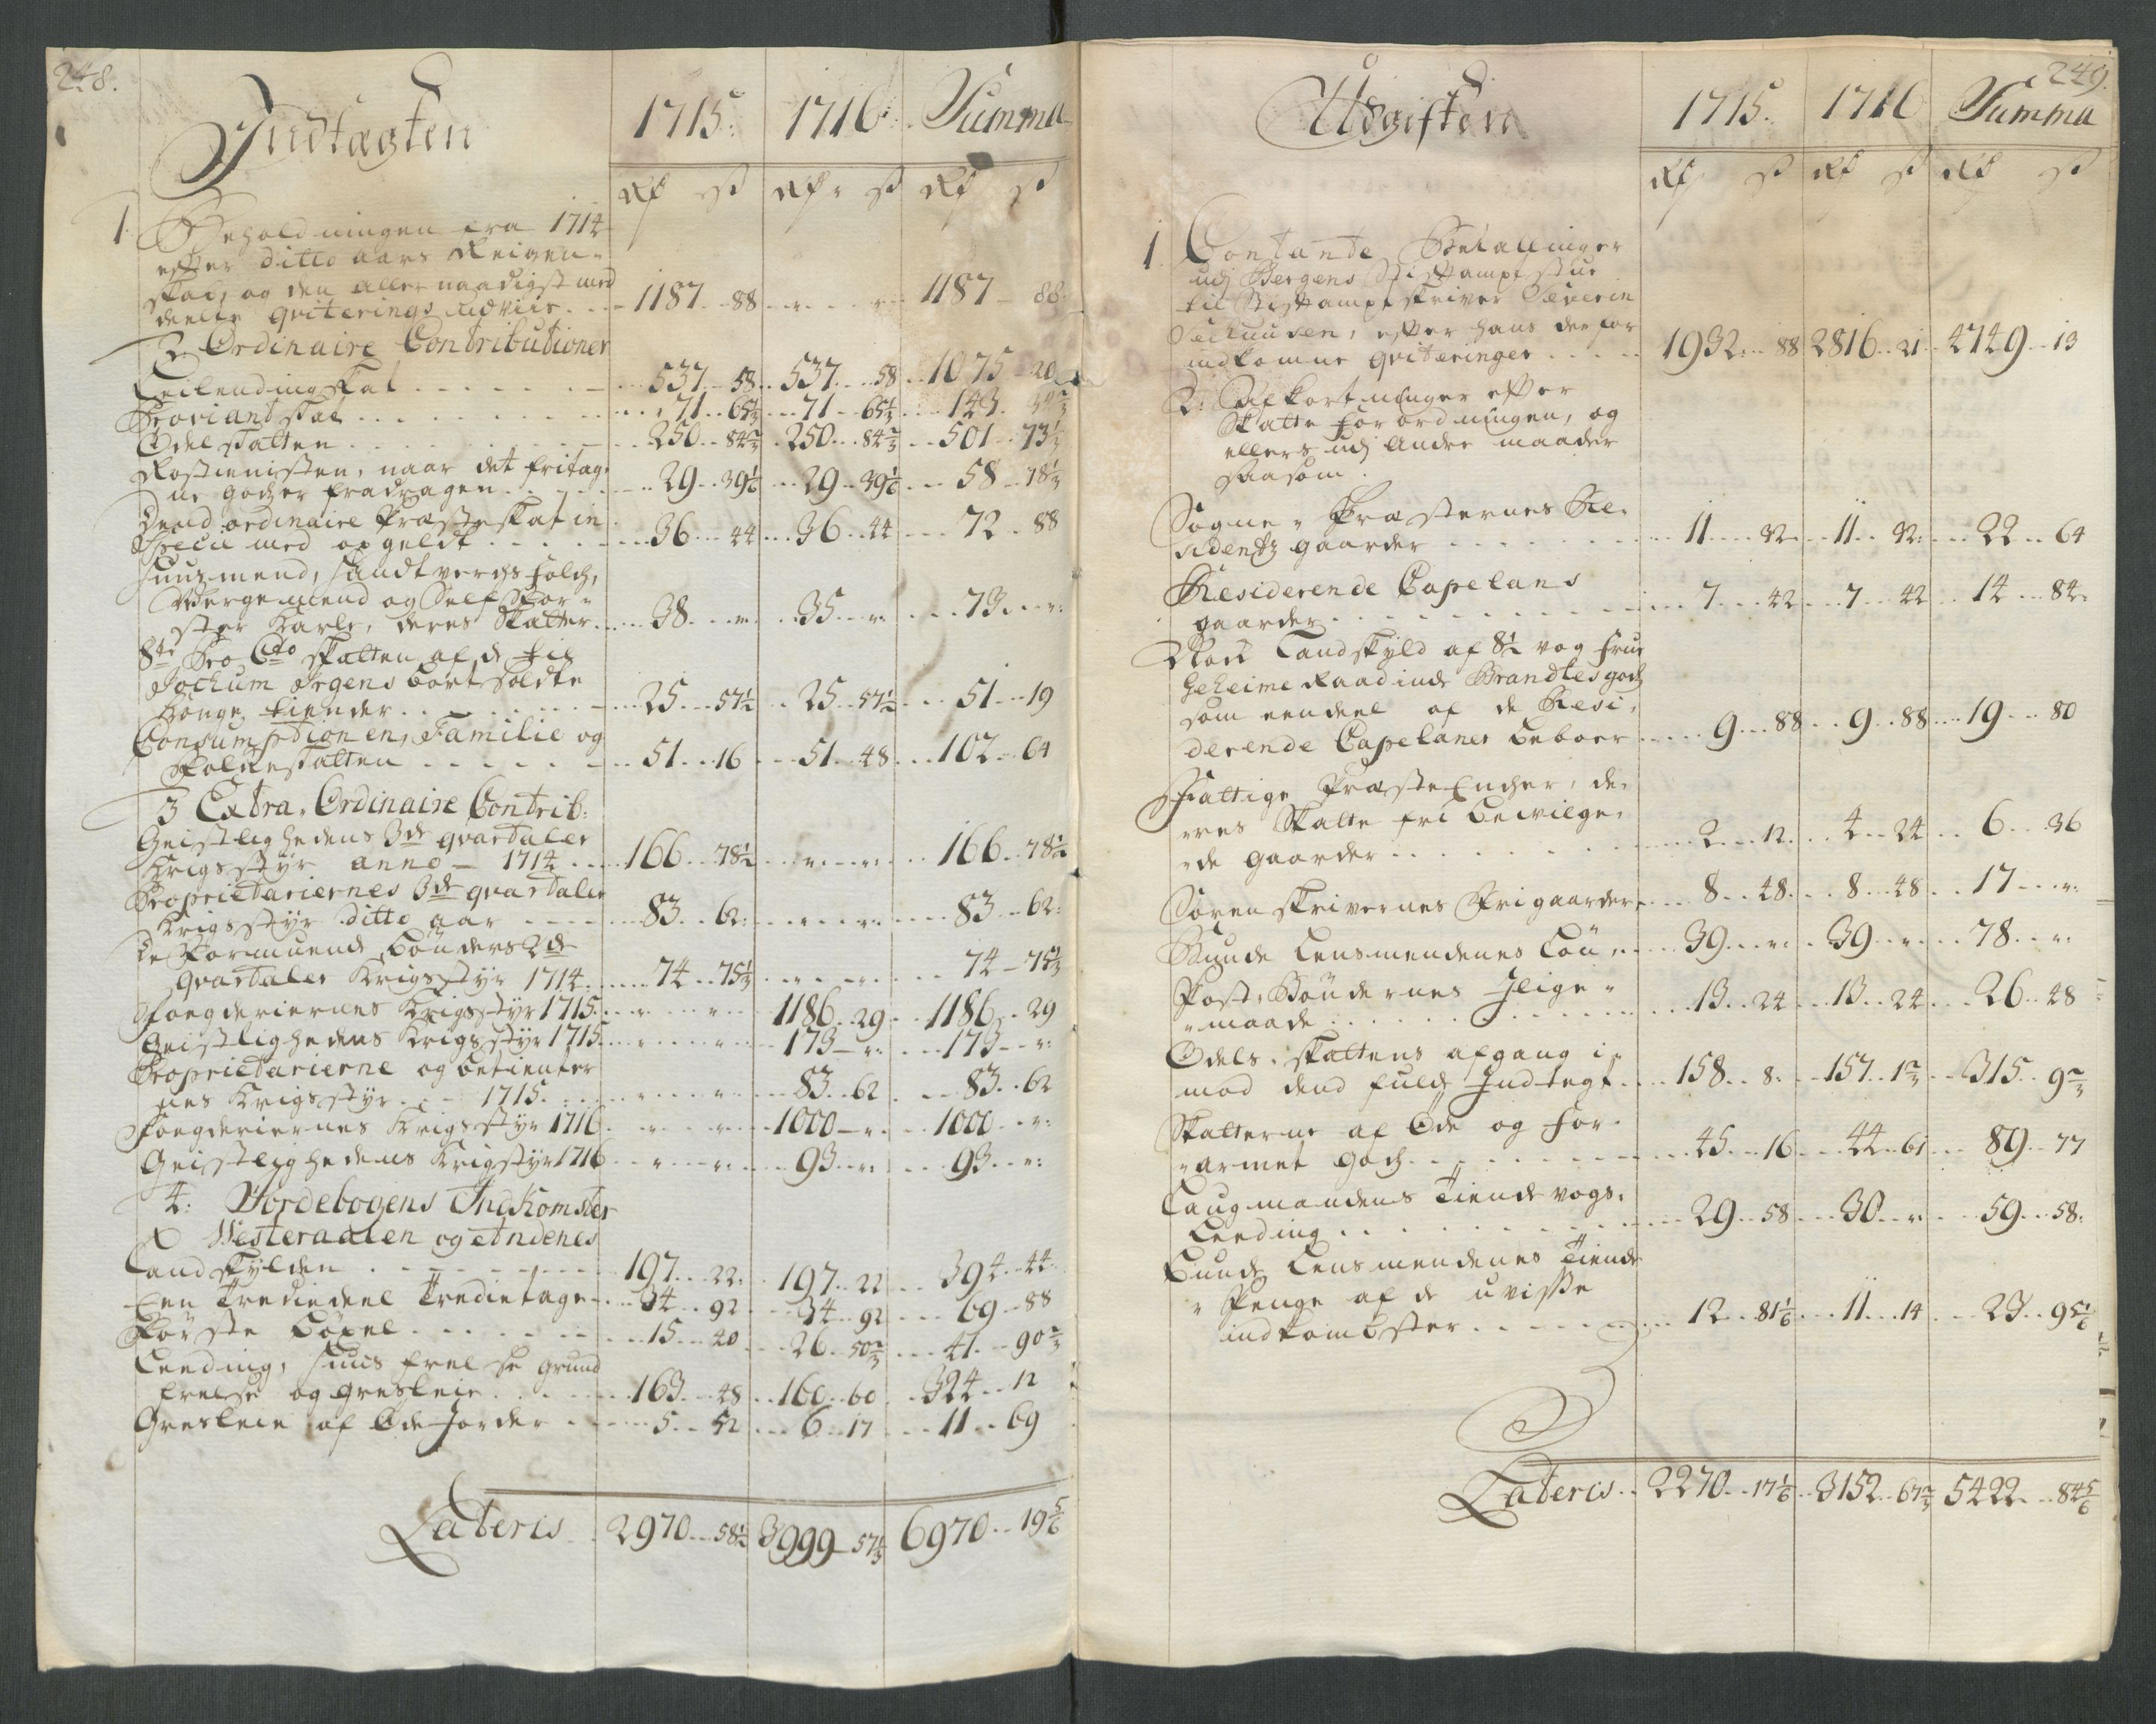 248.
Indtægten 1715: 1716 Summa
Rd ß Rd ß Rd ß
1. Beholdningen fra 1714
efter ditto aars Reigen-
skab, og den aller naadigst med
deelte qviterings udviis - 1187 - 88 - " - " - 1187 - 88
2. Ordinaire Contributioner
Leilendingskat - 537 - 58 - 537 - 58 - 1075 - 20
Proviantskat - 71 - 65 1/3 - 71 - 65 1/3 - 143 - 34 2/3
Odelskatten - 250 - 84 2/3 - 250 - 84 2/3 - 501 - 73 1/3
Rostienisten, naar det fritag-
ne godz er fradragen - 29 - 39 1/6 - 29 - 39 1/6 - 58 - 78 1/3
Dend ordinaire Præsteskat in
Specie med opgeldt - 36 - 44 - 36 - 44 - 72 - 88
Huusmend, Handtverchsfolch,
og Self
Karle, deres Skatter - 38 - " - 35 - " - 73 - "
8te Pro Cto skatten af de til
Jochum Irgens bortsoldte
Konge tiender - 25 - 57 1/2 - 25 - 57 1/2 - 51 - 19
Consumptionen, Familie og
Folkeskatten - 51 - 16 - 51 - 48 - 102 - 64
3 Extra, Ordinaire Contrib:
Geistlighedens 3de qvartaler
Krigsstyr anno - 1714 - 166 - 78 1/2 - " - " - 166 - 78 1/2
Proprietariernes 3de qvartaler
Krigsstyr ditto aar - 83 - 62: - " - " - 83 - 62:
De Formuende Bönders 2de
qvartaler Krigsstyr 1714 - 74 - 75 1/3 - " - " - 74 - 75 1/3
Fougderiernes Krigsstyr 1715 - " - " - 1186 - 29 - 1186 - 29
Geistlighedens Krigsstyr 1715 - " - " - 173 - " - 173 - "
Proprietarierne og betienter
nes Krigsstyr - 1715 - " - " - 83 - 62 - 83 - 62
Fougderiernes Krigsstyr 1716 - " - " - 1000 - " - 1000 - "
Geistlighedens Krigstyr 1716 - " - " - 93 - " - 93 - "
4: Jordebogens Indkomster
Westeraalen og Andenes
Landskylden - 197 - 22: - 197 - 22 - 394 - 44
Een Trediedeel Tredietage - 34 - 92 - 34 - 92 - 69 - 88
Förste böxel - 15 - 40 - 26 - 50 2/3 - 41 - 90 2/3
Leeding, Huus frelse grund
frelse og gresleie - 163 - 48 - 160 - 60 - 324 - 12
Gresleie af Öde Jorder - 5 - 52 - 6 - 17 - 11 - 69
Lateris - 2970 - 58 1/2 3999 - 57 1/3 6970 - 19 5/6
249.
Udgiften 1715. 1716 Summa
Rd ß Rd ß Rd ß
1. Contante Betallinger
udj Bergens Stiftampt stue
til Stiftamptskriver Severin
efter hans derfor
indkomne qviteringer - 1932 - 88 2816 - 21 - 4749 - 13
2. Afkortninger efter
Skatte forordningen, og
ellers udj andre maader
saasom:
Sogne Præsternes Re-
sidentz gaarder - 11 - 32 - 11 - 32: - 22 - 64
Residerende Capelans
gaarder - 7 - 42 - 7 - 42 - 14 - 84:
Landskyld af 8 1/2 vog Frue
Geheime Raadinde Brandtes godz
som eendeel af de Resi-
derende Capelaner beboer - 9 - 88 - 9 - 88 - 19 - 80
Fattige Præste Encher, de-
res Skatte fri bevilge-
de gaarder - 2 - 12 - 4 - 24 - 6 - 36
Sorenskrivernes Frigaarder - 8 - 48 - 8 - 48 - 17 - "
Bunde Lensmendenes Lön - 39 - " - 39 - " - 78 - "
Post, Böndernes Ilige
maade - 13 - 24 - 13 - 24 - 26 - 48
Odels skattens afgang i
mod dend fulde Indtegt - 158 - 8 - 157 - 1 2/3 - 315 - 9 2/3
Skatterne af Öde og for
armet godz - 45 - 16 - 44 - 61 - 89 - 77
Laugmandens Tiende vogs
Leeding - 29 - 58 - 30 - " - 59 - 58:
Bunde Lensmendenes Tiende
Penge af de uvisse
indkombster - 12 - 81 1/6 - 11 - 14 - 23 - 95 1/6
Lateris - 2270 - 17 1/6 - 3152 - 67 2/3 5422 - 84 5/6